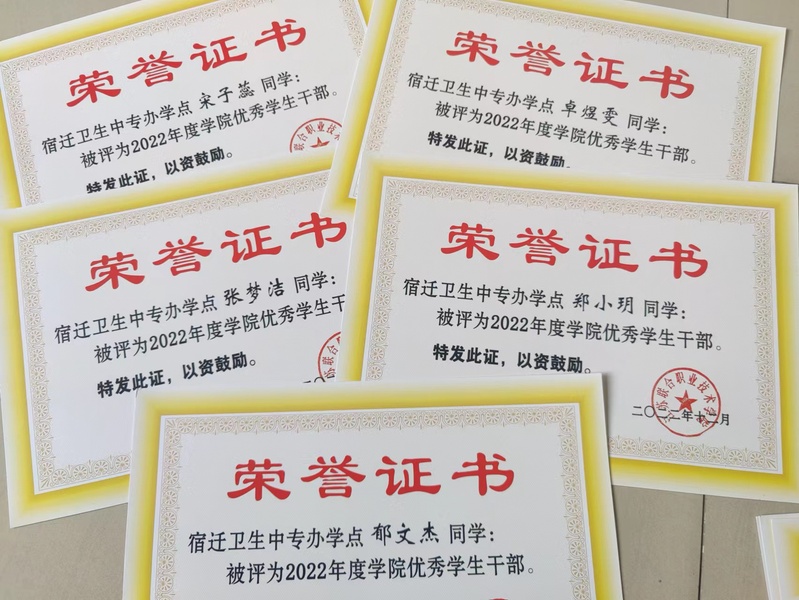 荣誉证书
宿迁卫生中专办学点 宋子蕊 同学：
被评为2022年度学院优秀学生干部。
特发此证，以资鼓励。
联合职业技术
荣誉证书
宿迁卫生中专办学点 卓煜雯 同学：
被评为2022年度学院优秀学生干部。
特发此证，以资鼓励。
荣誉证书
宿迁卫生中专办学点 张梦洁 同学：
被评为2022年度学院优秀学生干
特发此证，以资鼓励。
荣誉证书
宿迁卫生中专办学点 郑小玥 同学：
被评为2022年度学院优秀学生干部。
特发此证，以资鼓励。
联合职业技术学院
二〇二二年十二月
荣誉证书
宿迁卫生中专办学点 郁文杰 同学：
被评为2022年度学院优秀学生干部。